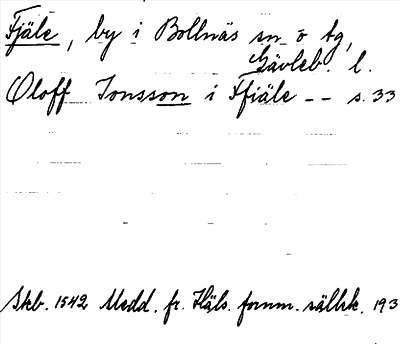 Fjäle, by i Bollnäs sn o tg,
Gävleb. l.
Oloff Jonsson i Ffiäle -- s. 33
Skb. 1542 Medd. fr. Häls. fornm. sällsk. 193